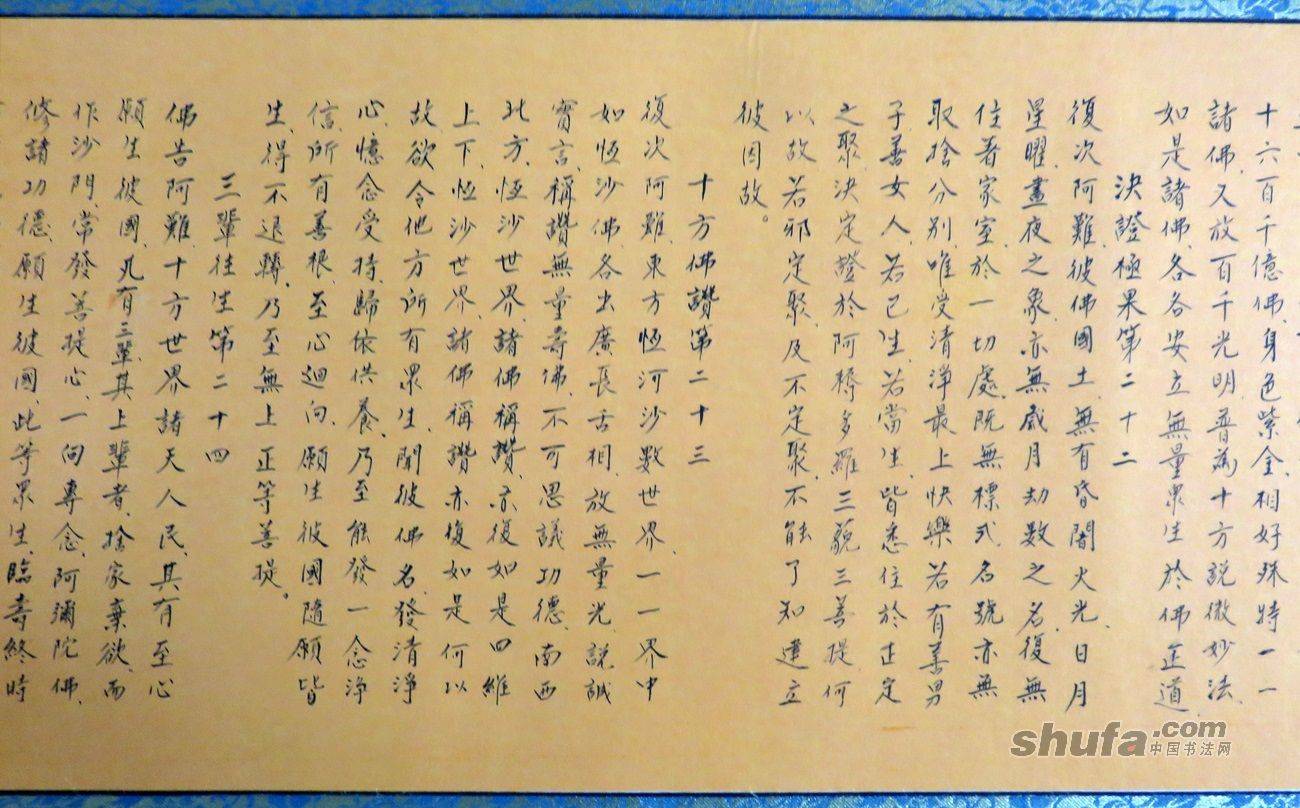 十六百千億佛、身色紫金、相好殊特、一一
諸佛、又放百千光明、普為十方說微妙法、
如是諸佛、各各安立無量眾生於佛正道、
決證極果第二十二
復次阿難、彼佛國土、無有昏闇、火光、日月、
星曜、晝夜之象、亦無歲月劫數之名、復無
住著家室、於一切處、既無標式名號、亦無
取捨分別、唯受清淨最上快樂、若有善男
子、善女人、若已生、若當生、皆悉住於正定
之聚、決定證於阿耨多羅三藐三菩提、何
以故、若邪定聚、及不定聚、不能了知建立
彼因故。
十方佛讚第二十三
復次阿難、東方恆河沙數世界、一一界中
如恆沙佛、各出廣長舌相、放無量光、說誠
實言、稱讚無量壽佛、不可思議功德、南西
北方、恆沙世界、諸佛稱讚、亦復如是、四維
上下、恆沙世界、諸佛稱讚、亦復如是、何以
故、欲令他方所有眾生、聞彼佛名、發清淨
心、憶念受持、歸依供養、乃至能發一念淨
信、所有善根、至心迴向、願生彼國、隨願皆
生、得不退轉、乃至無上正等菩提。
三輩往生第二十四
佛告阿難、十方世界諸天人民、其有至心
願生彼國、凡有三輩、其上輩者、捨家棄欲、而
作沙門、常發菩提心、一向專念、阿彌陀佛、
修諸功德、願生彼國、此等眾生、臨壽終時
shufa.com
中国书法网